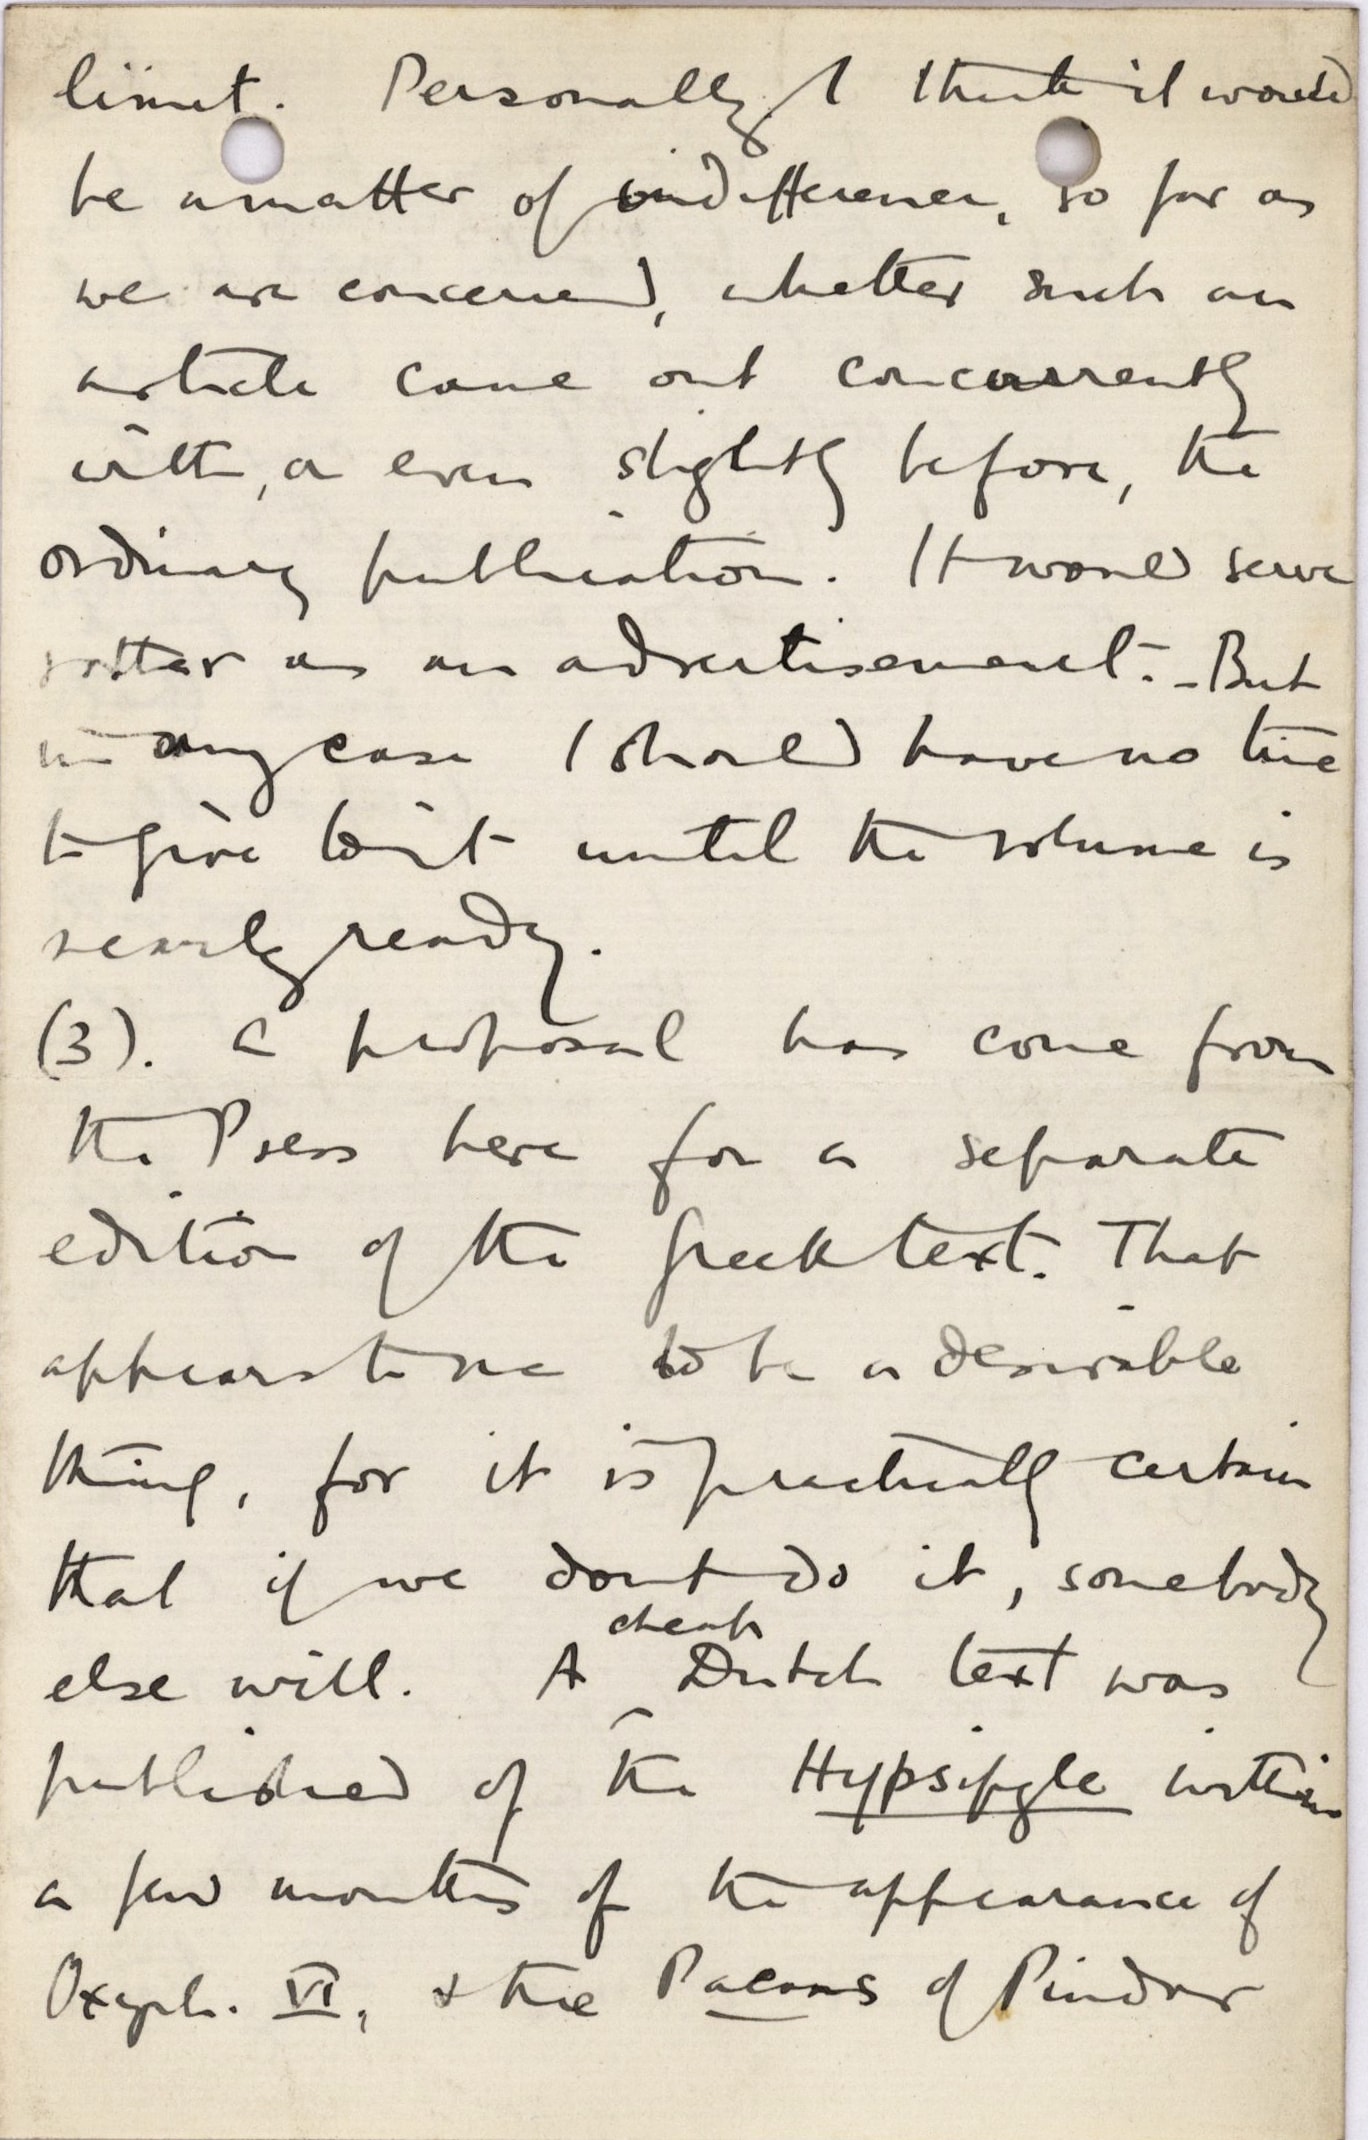 limit. Personally I think it would
be a matter of indifference, so far as
we are concerned, whether such an
article came out concurrently
with, or even slightly before, the
ordinary publication. It would serve
rather as an advertisement. - But
in any case I should have no time
to give to it until the volume is
nearly ready.
(3). A proposal has come from
the Press here for a separate
edition of the Greek text. That
appears to me to be a desirable
thing, for it is practically certain
that if we dont do it, somebody
else will. A cheap Dutch text was
published of the Hypsipyle within
a few months of the appearance of
Oxyrh. VI, & the Paeans of Pindar